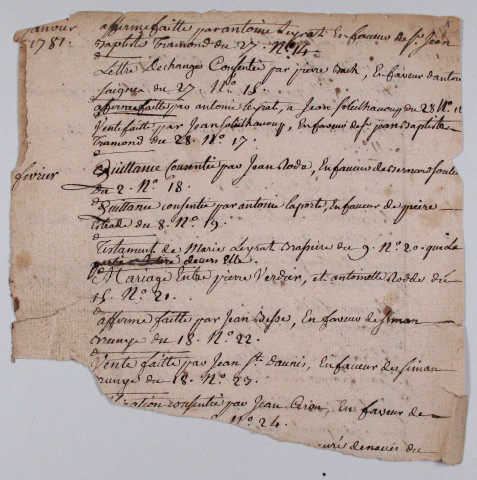 janvier 1781. afferme faitte par antoine Leyrat, En faveur de Sr. Jean
Baptiste Tramond du 27. No. 14
Lettre Dechange Consentie par pierre Bach, En faveur d'antoine
du 27. No. 15.
afferme faitte par antoine Leyrat, a Jean Soleilhavoup du 28. No. 16
Vente faitte par Jean Soleilhavoup, En faveur de Sr. jean Baptiste
Tramond du 28. No. 17.
fevrier Quittance Consentie par Jean Rode, En faveur de Bernard
du 2. No. 18.
Quittance consentie par antoine Laporte, En faveur de pierre
Estrade du 8. No. 19.
Testament de Marie Leyrat Brassiere du 9. No. 20. que La
partie a devers Elle.
Mariage Entre pierre Verdier, et antoinette Rodde du
15. No. 21.
afferme faitte par Jean Besse, En faveur de Siman
du 18. No. 22.
Vente faitte par Jean St. Daunis, En faveur de Siman
du 18. No. 23.
consentie par Jean Ceron, En faveur de
No. 24.
curé de noués du